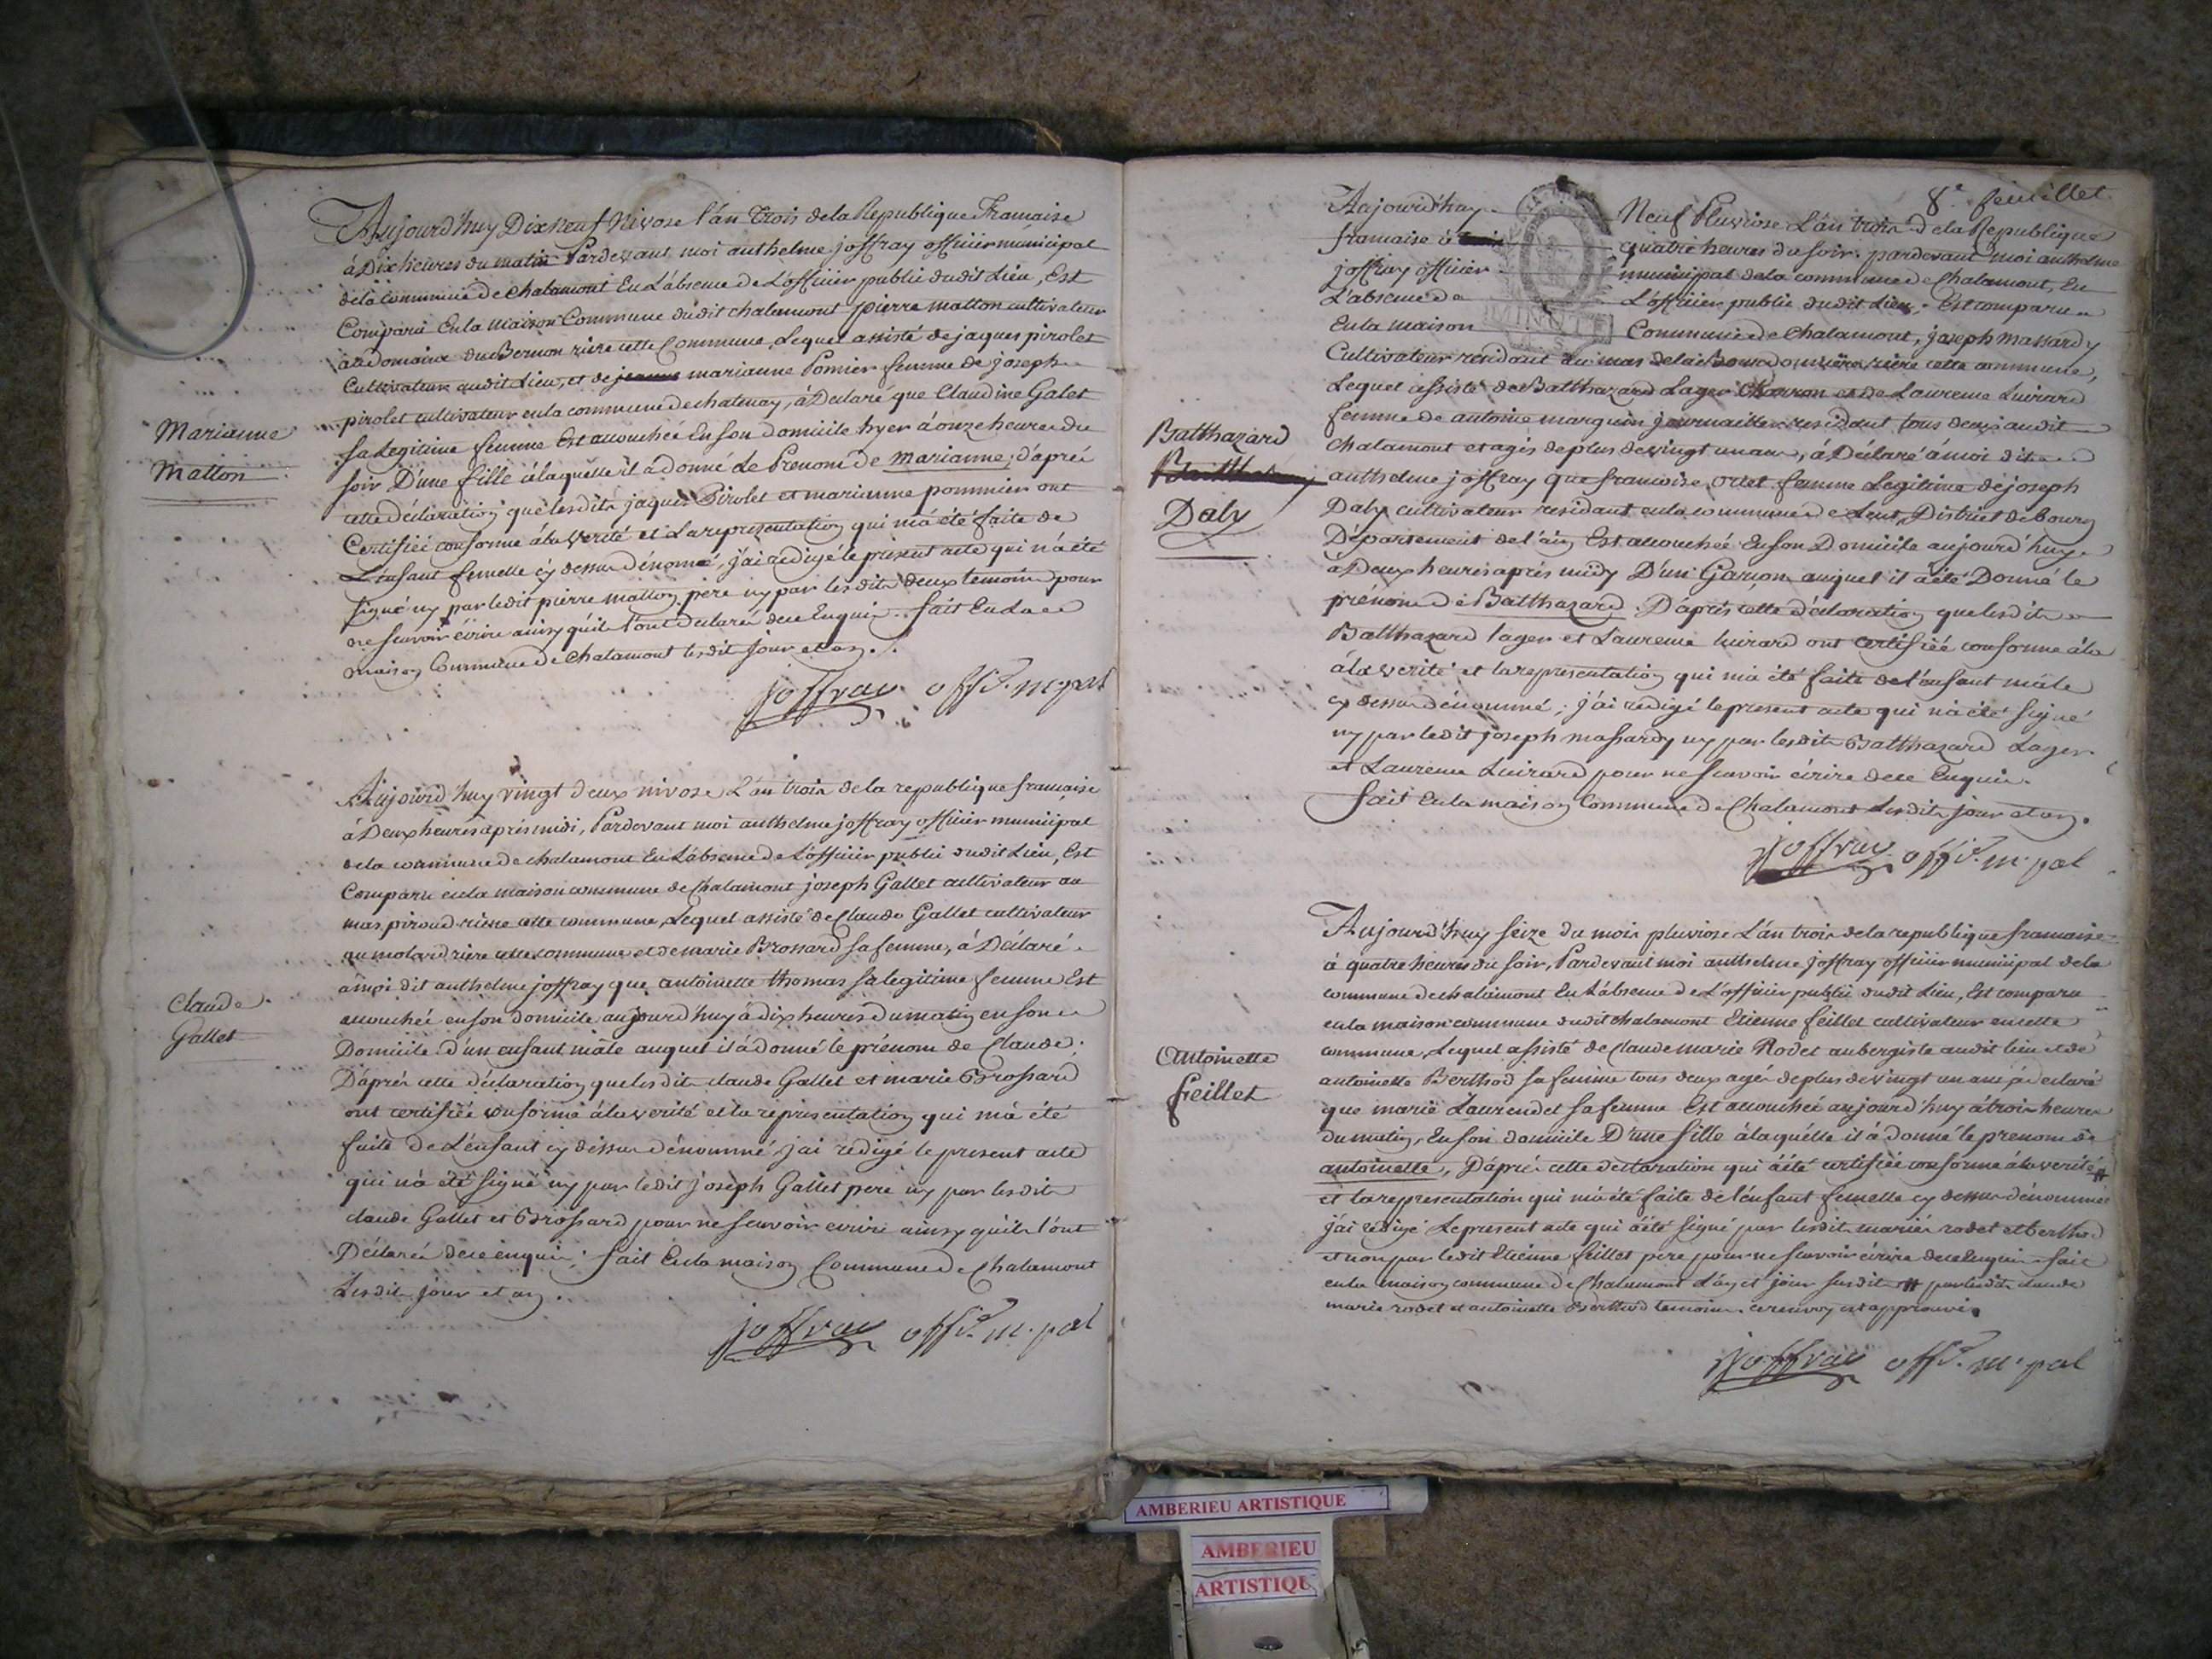 Marianne
Matton
Aujourd'huy Dix neuf Nivose l'an Trois de la Republique Francaise
à Dix heures du matin Pardevant moi anthelme joffray officier municipal
de la commune de chalamont En L'absence de L'officier public dudit Lieu, Est
Comparu En la Maison Commune dudit chalamont pierre matton cultivateur
au domaine du Bernon riere cette Commune, Lequel assisté de jaques pirolet
Cultivateur audit Lieu, et de marianne Pomier femme de joseph
pirolet cultivateur en la commune de chatenay, à Declaré que Claudine Galet
sa Legitime femme Est accouchée En son domicile hyer à onze heures du
soir D'une fille à laquelle il à donné Le Prenom de Marianne, d'aprés
cette déclaration que lesdits jaques Pirolet et marianne pommier ont
Certifiée conforme à la verité et La representation qui m'à été faite de
L'enfant femelle cy dessus dénomé, j'ai redigé le present acte qui n'à été
signé ny par ledit pierre matton pere ny par lesdits deux temoins pour
ne scavoir écrire ainsy qu'ils l'ont declaré de ce Enquis. fait En la
maison Commune de chalamont lesdit jour et an.
joffray off.r m.pal
Claude
Gallet
Aujourd'huy vingt deux nivose L'an trois de la republique francaise
à Deux heures aprés midi, Pardevant moi anthelme joffray officier municipal
de la commune de chalamont En L'absence de L'officier public dudit Lieu, Est
Comparu en la maison commune de Chalamont joseph Gallet cultivateur au
mas piroud riere cette commune, Lequel assisté de Claude Gallet cultivateur
au molard riere cette commune et de marie Brossard sa femme, à Déclaré
à moi dit anthelme joffray que antoinette thomas sa legitime femme Est
accouchée en son domicile aujourd'huy à dix heures du matin en son
Domicile d'un enfant mâle auquel il à donné le prénom de Claude;
D'aprés cette déclaration que lesdits claude Gallet et marie Brossard
ont certifiée conforme à la verité et la representation qui m'à été
faite de L'enfant cy dessus dénommé, j'ai redigé le present acte
qui n'à été signé ny par ledit joseph Gallet pere ny par lesdits
claude Gallet et Brossard pour ne scavoir ecrire ainsy qu'ils l'ont
Déclaré de ce enquis; fait En la maison Commune de Chalamont
Lesdit jour et an.
joffray off.r m.pal
8.e feuillet
Balthazard
Daly
Aujourd'huy Neuf Pluviose L'an trois de la Republique
francaise à quatre heures du soir. pardevant moi anthelme
joffray officier municipal de la commune de Chalamont, En
L'absence de L'officier public dudit Lieu. Est comparu
En la maison Commune de Chalamont, joseph massardy
MINUTE
Cultivateur residant au mas de la riere cette commune,
Lequel assisté de Balthazard Lager Charron et de Laurence Luirard
femme de antoine marguin journaillier residant tous deux audit
chalamont et agés de plus de vingt un ans, à Déclaré à moi dit
anthelme joffray que francoise femme Legitime de joseph
Daly cultivateur residant en la commune de Lent, District de bourg
Département de l'ain Est accouchée En son Domicile aujourd'huy
à Deux heures aprés midy D'un Garcon auquel il à été Donné le
prénom de Balthazard. D'aprés cette déclaration que lesdits
Balthazard lager et Laurence Luirard ont certifiée conforme à la
à la verité et la representation qui m'a été faite de l'enfant mâle
cy dessus dénommé; j'ai redigé le present acte qui n'à été signé
ny par ledit joseph massardy ny par lesdits Balthazard Lager
et Laurence Luirard pour ne scavoir écrire de ce Enquis.
fait En la maison Commune de Chalamont Lesdit jour et an.
joffray off.r m.pal
Antoinette
feillet
Aujourd'huy seize du mois pluviose L'an trois de la republique francaise
à quatre heures du soir, Pardevant moi anthelme joffray officier municipal de la
commune de chalamont En L'absence de L'officier public dudit Lieu, Est comparu
en la maison commune dudit chalamont Etienne feillet cultivateur en cette
commune, Lequel assisté de Claude marie Rodet aubergiste audit lieu et de
antoinette Berthod sa femme tous deux agés de plus de vingt un ans à declaré
que marie Laurendet sa femme Est accouchée aujourd'huy à trois heures
du matin, En son domicile D'une fille à laquelle il à donné le prenom de
antoinette, D'aprés cette declaration qui à été certifiée conforme à la verité #
et la representation qui m'à été faite de l'enfant femelle cy dessus dénommée
j'ai redigé Le present acte qui à été signé par lesdits mariés rodet et berthod
et non par ledit Etienne feillet pere pour ne scavoir écrire de ce Enquis. fait
en la maison commune de Chalamont L'an et jour susdit # par lesdits claude
marie rodet et antoinette Berthod temoins. ce renvoy est approuvé.
joffray off.r m.pal
AMBERIEU ARTISTIQUE
AMBERIEU
ARTISTIQU